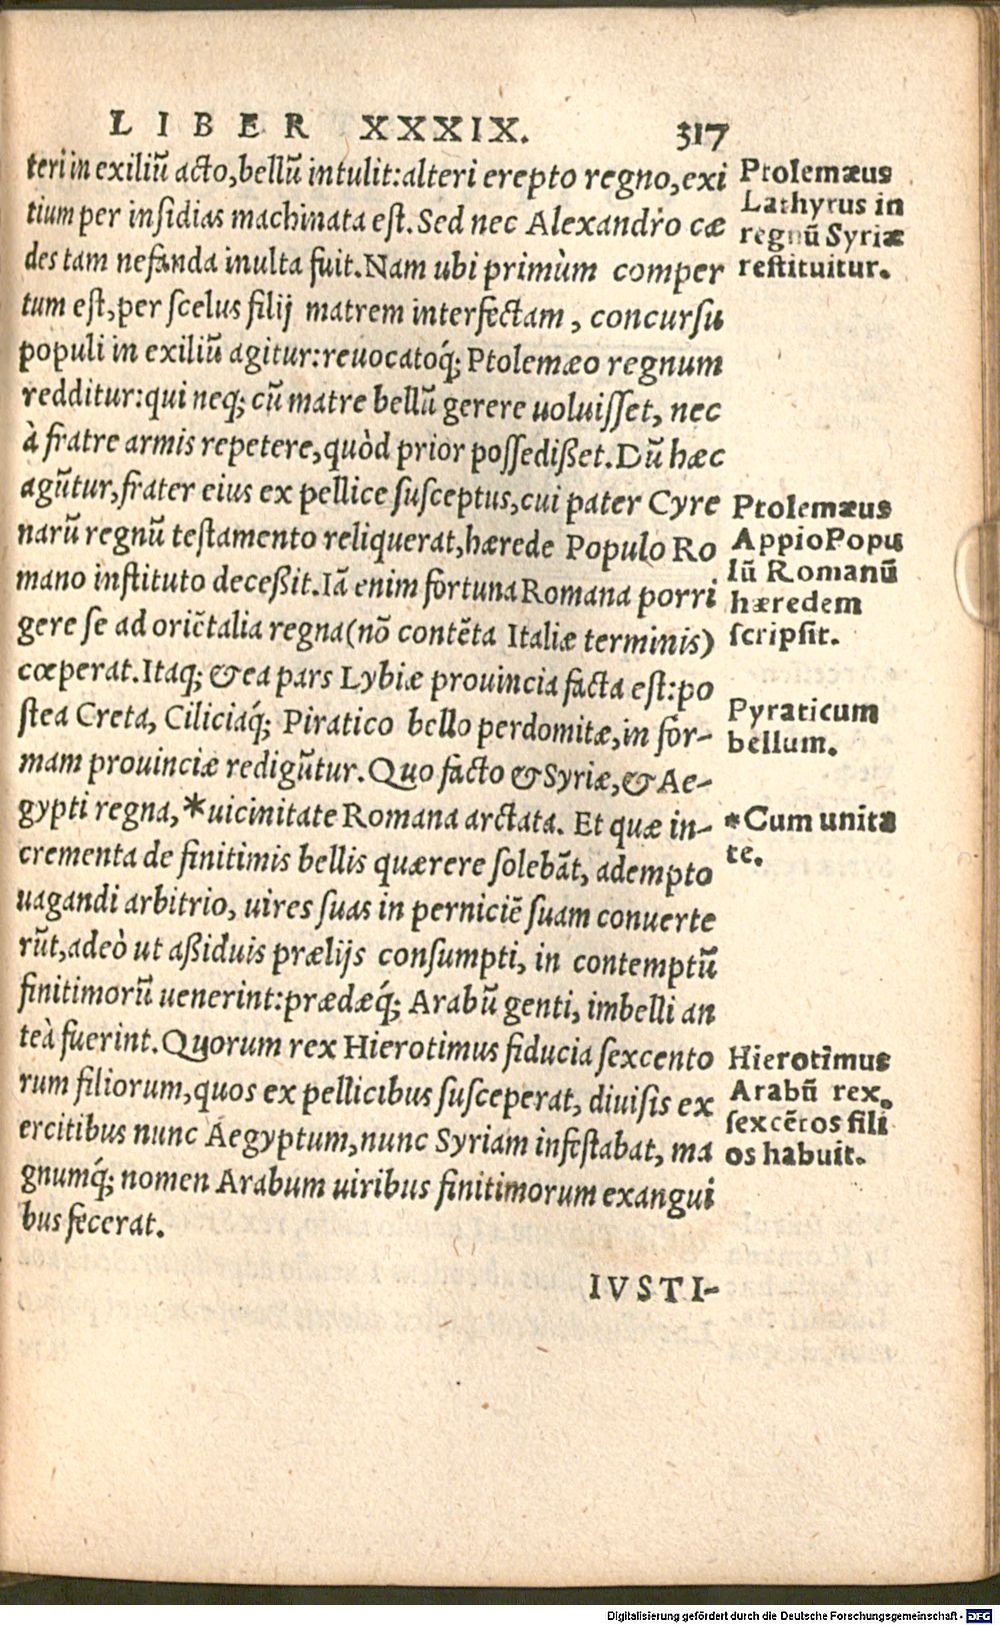 LIBER XXXIX. 317
teri in exiliũ acto, bellũ intulit: alteri erepto regno, exi
tium per insidias machinata est. Sed nec Alexandro cæ
des tam nefanda inulta fuit. Nam ubi primùm comper
tum est, per scelus filij matrem interfectam, concursu
populi in exiliũ agitur: reuocatoq́; Ptolemæo regnum
redditur: qui neq; cũ matre bellũ gerere uoluisset, nec
à fratre armis repetere, quòd prior possedißet. Dũ hæc
agũtur, frater eius ex pellice susceptus, cui pater Cyre
narũ regnũ testamento reliquerat, hærede Populo Ro
mano instituto deceßit. Iã enim fortuna Romana porri
gere se ad oriẽtalia regna (nõ contẽta Italiæ terminis)
cœperat. Itaq; & ea pars Lybiæ prouincia facta est: po
stea Creta, Ciliciaq́; Piratico bello perdomitæ, in for-
mam prouinciæ redigũtur. Quo facto & Syriæ, & Ae-
gypti regna, *uicinitate Romana arctata. Et quæ in-
crementa de finitimis bellis quærere solebãt, adempto
uagandi arbitrio, uires suas in perniciẽ suam conuerte
rũt, adeò ut aßiduis prælijs consumpti, in contemptũ
finitimorũ uenerint: prædæq́; Arabũ genti, imbelli an
teà fuerint. Quorum rex Hierotimus fiducia sexcento
rum filiorum, quos ex pellicibus susceperat, diuisis ex
ercitibus nunc Aegyptum, nunc Syriam infestabat, ma
gnumq́; nomen Arabum uiribus finitimorum exangui
bus fecerat.
IVSTI-
Ptolemæus
Lathyrus in
regnũ Syriæ
restituitur.
Ptolemæus
Appio Popu
lũ Romanũ
hæredem
scripsit.
Pyraticum
bellum.
*Cum unita
te.
Hierotimus
Arabũ rex,
sexcẽtos fili
os habuit.
Digitalisierung gefördert durch die Deutsche Forschungsgemeinschaft - DFG